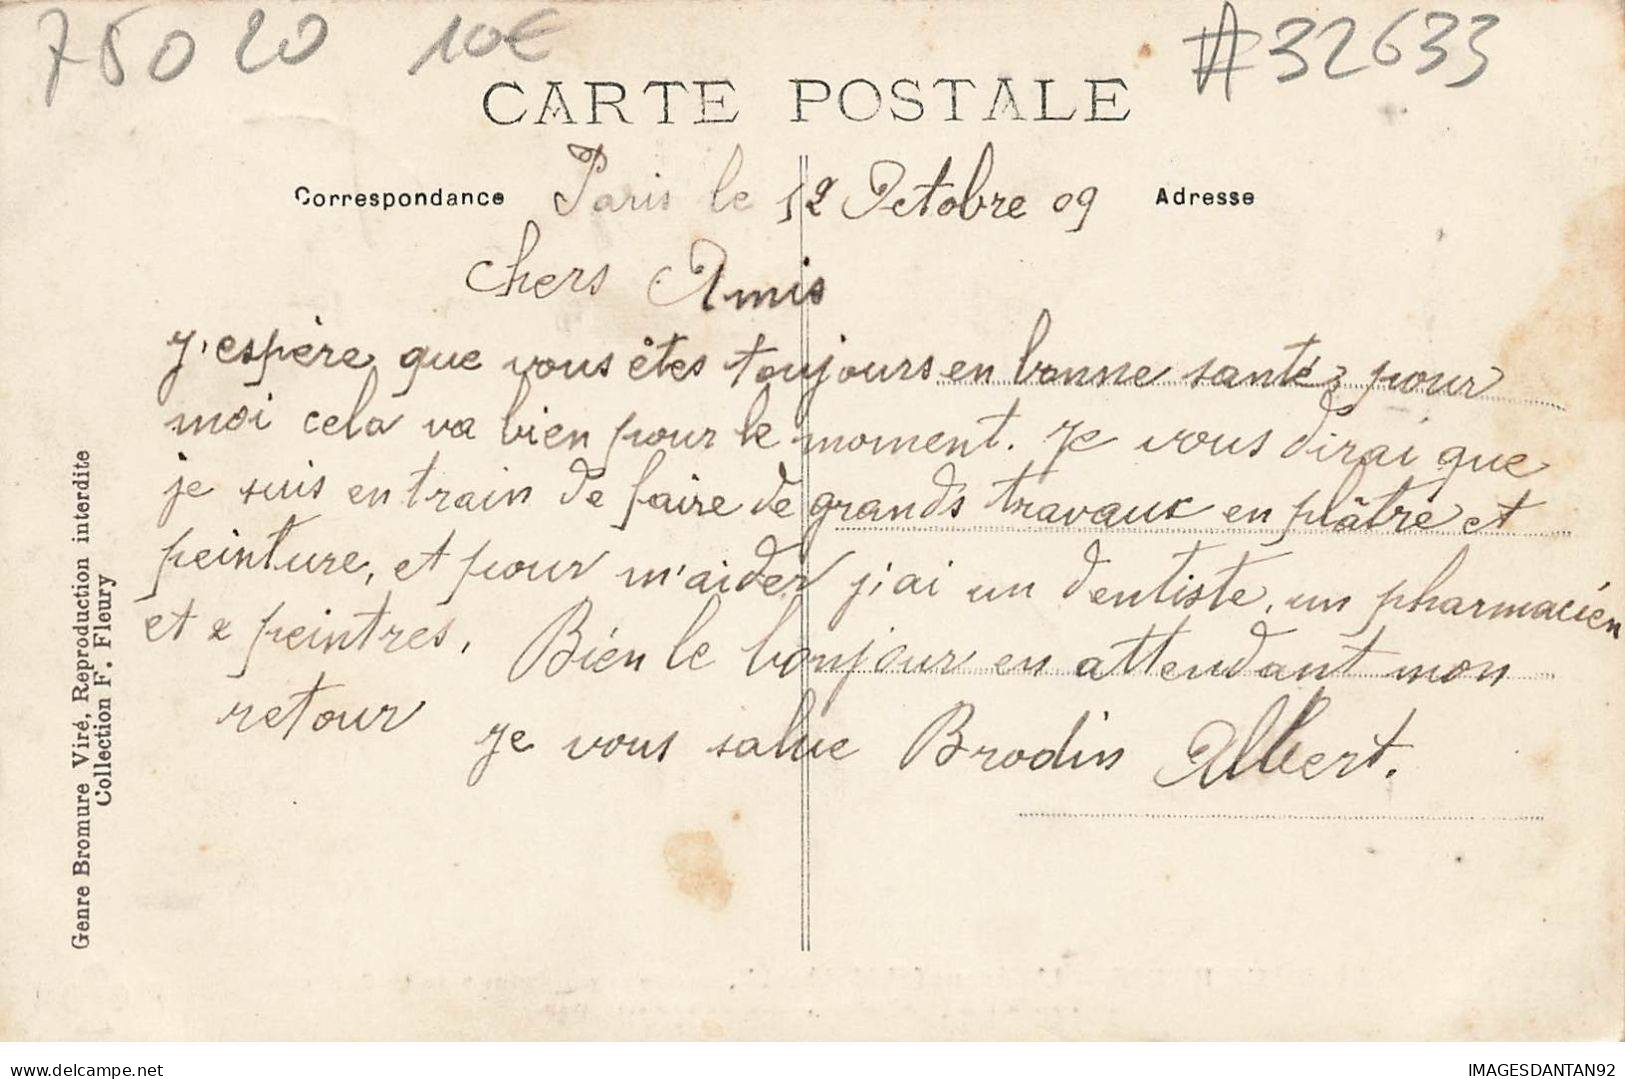 75020 10€ #32633
CARTE POSTALE
Correspondance Paris le 12 Octobre 09 Adresse
Chers Amis
J'espère que vous êtes toujours en bonne santé, pour
moi cela va bien pour le moment. Je vous dirai que
je suis en train de faire de grands travaux en plâtre et
peinture, et pour m'aider j'ai un dentiste, un pharmacien
et 2 peintres. Bien le bonjour en attendant mon
retour Je vous salue Brodin Albert.
Genre Bromure Viré, Reproduction interdite
Collection F. Fleury
delcampe.net
IMAGESDANTAN92